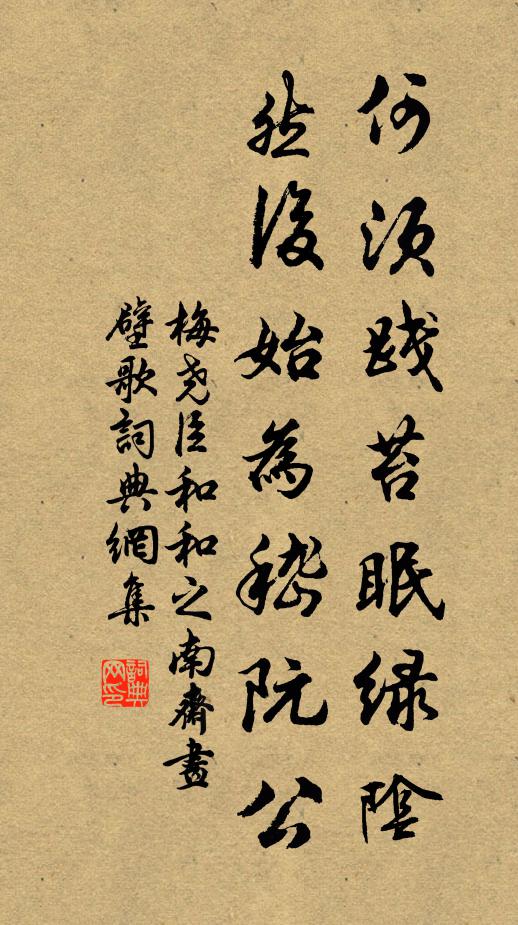 何須踐苔眠綠陰
然後始為嵇阮公
梅尧臣和和之南齋畫
壁歌詞典網集
詞典网印